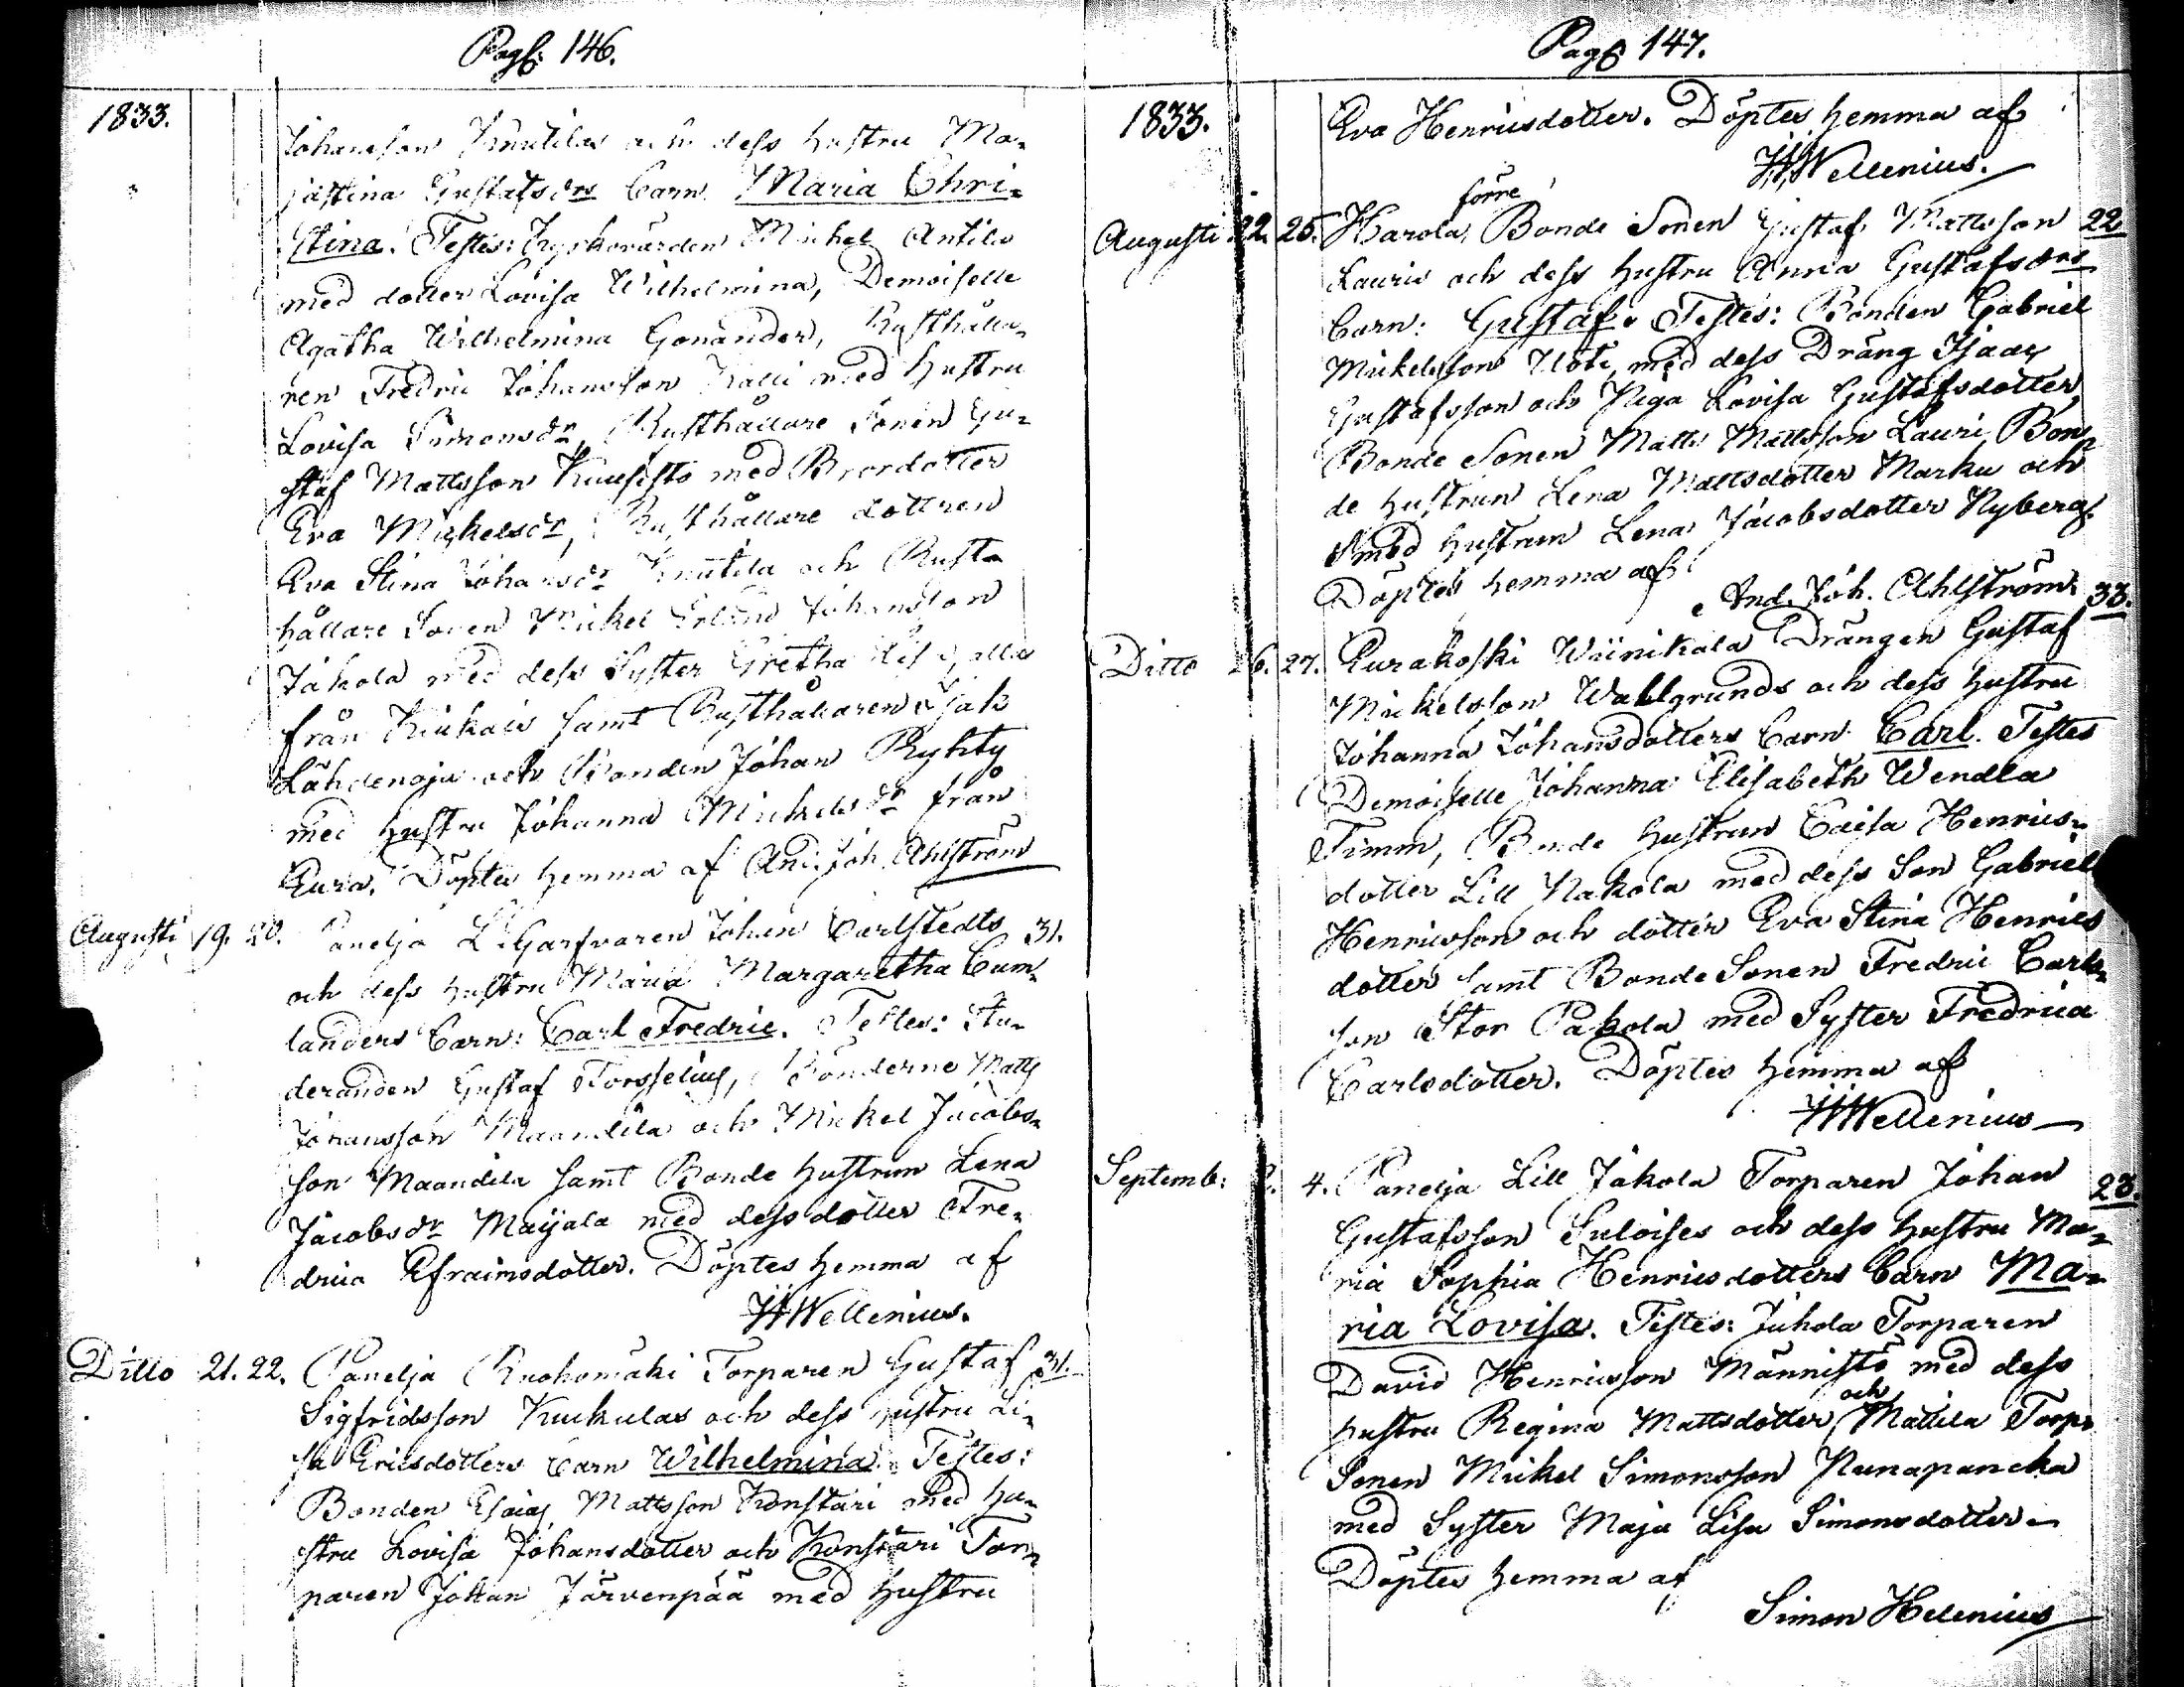 Pag: 146.
1833.
Johansson Knutilas och dess hustru Ma-
jastina Gustafsdrs Barn Maria Chri-
stina. Testes: Kyrkovärden Michel Antila
med dotter Lovisa Wilhelmina, Demoiselle
Agatha Wilhelmina Gonander, Rusthålla-
ren Fredric Johansson Kalli med hustru
Lovisa Simonsdr, Rusthållare Sonen Gu-
staf Mattsson Kuusisto med Brordotter
Eva Michelsdr, Rusthållare dottren
Eva Stina Johansdr Knutila och Rust-
hållare Sonen Mickel Erland Johansson
Jakola med dess Syster Gretha Lisa, alla
från Kiukais samt Rusthållaren Isak
Lähdenoja och Bonden Johan Ryhty
med hustru Johanna Mickelsdr från
Eura. Döptes hemma af And. Joh. Ahlström
Augusti 19. 20. Panelja L. Garfvaren Johan Carlstedts 31.
och dess hustru Maria Margaretha Cum-
landers Barn: Carl Fredric. Testes: Stu-
deranden Gustaf Forsselius, Bönderne Matts
Johansson Maandila och Mickel Jacobs-
son Maandila samt Bonde hustrun Lena
Jacobsdr Maijala med dess dotter Fre-
drica Efraimsdotter. Döptes hemma af
Wellenius.
Ditto 21. 22. Panelja Ruohomäki Torparen Gustaf 31.
Sigfridsson Kuukulas och dess hustru Li-
sa Ericsdotters Barn Wilhelmina. Testes:
Bonden Esaias Mattsson Konstari med hu-
stru Lovisa Johansdotter och Konstari Tor-
paren Johan Järvenpää med hustru
Pag: 147.
1833.
Eva Henricsdotter. Döptes hemma af
Wellenius.
förre
Augusti 22. 25. Harola, Bonde Sonen Gustaf Mattsson 22
Lauris och dess hustru Anna Gustafsdrs
Barn: Gustaf. Testes: Bonden Gabriel
Mickelsson Uoti, med dess Dräng Isaac
Gustafsson och Piga Lovisa Gustafsdotter,
Bonde Sonen Matts Mattsson Lauri, Bon-
de hustrun Lena Mattsdotter Marku och
Smed hustrun Lena Jacobsdotter Nyberg.
Döptes hemma af
And. Joh. Ahlström. 33.
Ditto 26. 27. Eurakoski Wiinikala Drängen Gustaf
Mickelsson Wahlgrunds och dess hustru
Johanna Johansdotters Barn Carl. Testes
Demoiselle Johanna Elisabeth Wendla
Timm, Bonde hustrun Caisa Henrics-
dotter Lill Nakola med dess Son Gabriel
Henricsson och dotter Eva Stina Henrics
dotter samt Bonde Sonen Fredric Carls-
son Stor Pakola med Syster Fredrica
Carlsdotter. Döptes hemma af
Wellenius
Septemb: 4. Panelja Lill Jakola Torparen Johan 23.
Gustafsson Suloises och dess hustru Ma-
ria Sophia Henricsdotters Barn Ma-
ria Lovisa. Testes: Juhola Torparen
David Henricsson Männistö med dess
hustru Regina Mattsdotter, och Mattila Torp-
Sonen Mickel Simonsson Punapancka
med Syster Maja Lisa Simonsdotter
Döptes hemma af
Simon Helenius